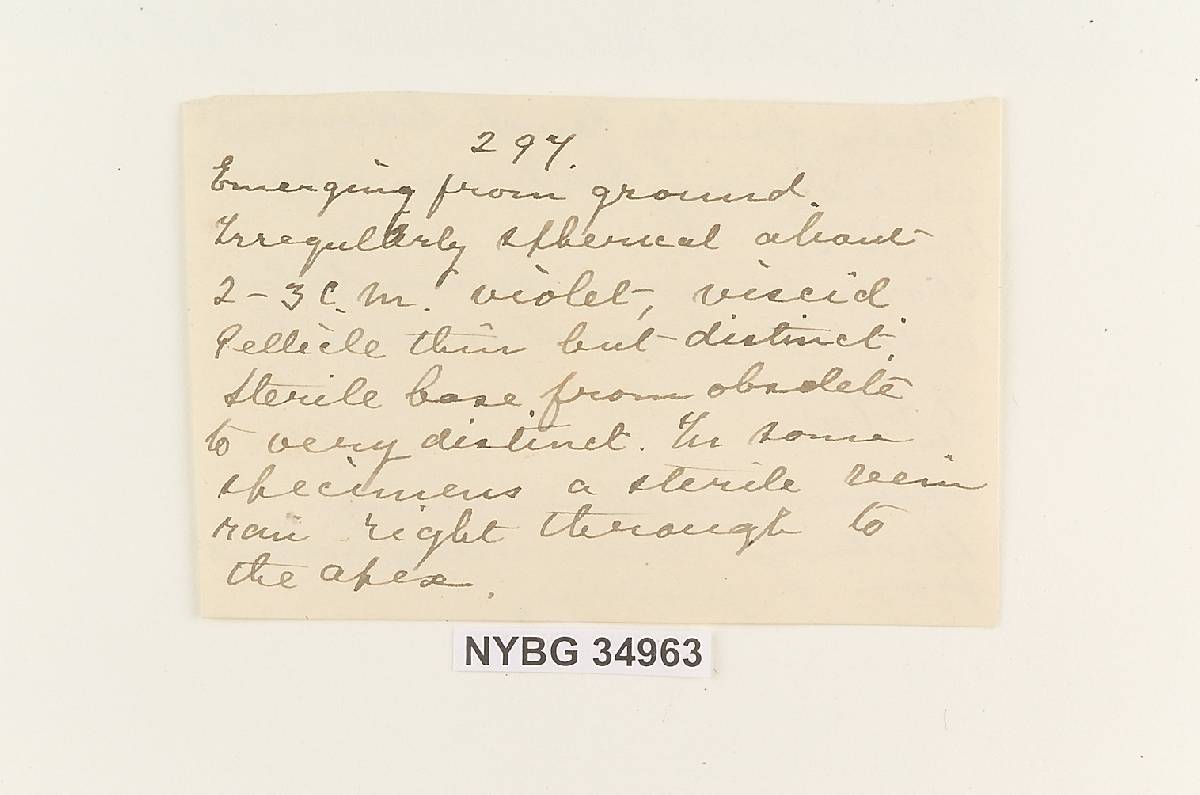 297.
Emerging from ground.
Irregularly spherical about
2-3 c.m. violet, viscid
Pellicle thin but distinct.
Sterile base from obsolete
to very distinct. In some
specimens a sterile vein
ran right through to
the apex.
NYBG 34963